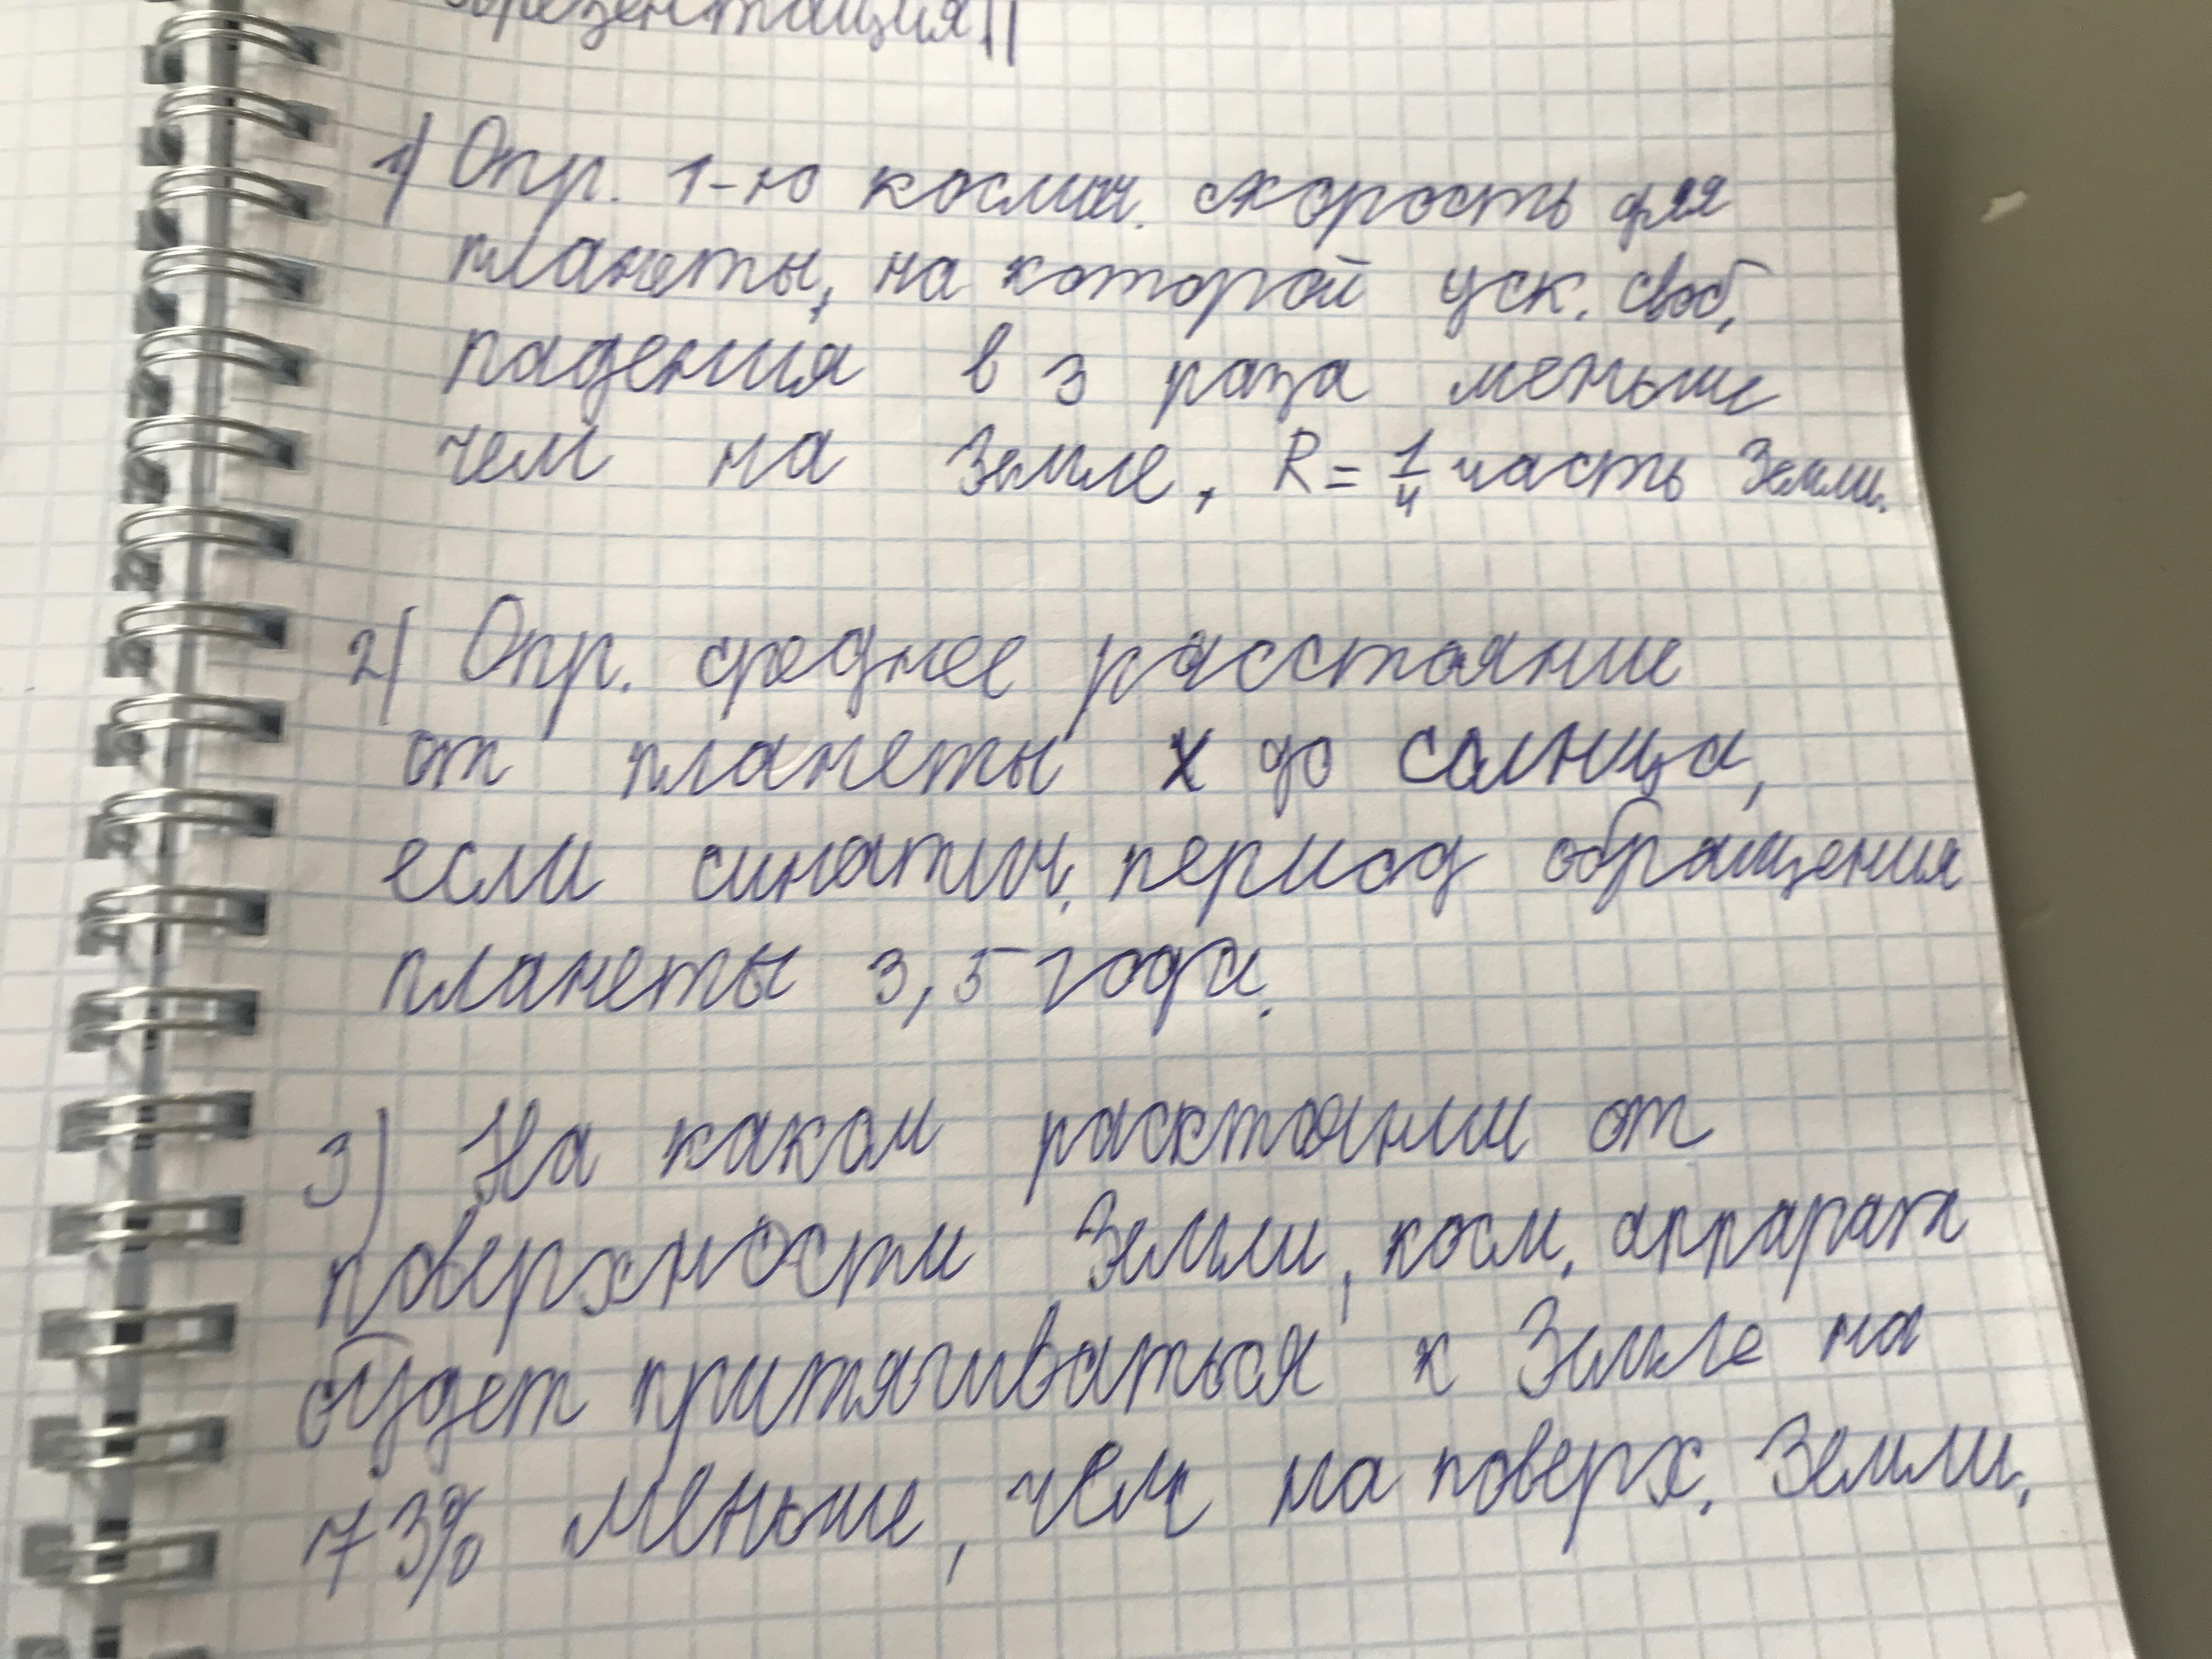 презентация!!
1) Опр. 1-ю космич. скорость для
планеты, на которой уск. своб.
падения в 3 раза меньше
чем на Земле, R = 1/4 часть Земли.
2) Опр. среднее расстояние
от планеты X до солнца,
если синатич. период обращения
планеты 3,5 года.
3) На каком расстоянии от
поверхности Земли, косм. аппарат
будет притягиваться к Земле на
73% меньше, чем на поверх. Земли.